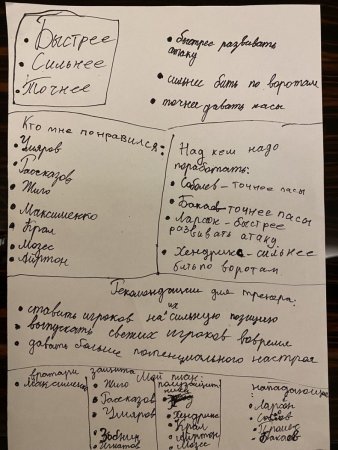 Быстрее
Сильнее
Точнее
быстрее развивать
атаку
сильнее бить по воротам
точнее давать пасы
Кто мне понравился:
Умяров
Рассказов
Жиго
Максименко
Крал
Мозес
Айртон
Над кем надо
поработать:
Соболев – точнее пасы
Бакаев – точнее пасы
Ларсон – быстрее
развивать атаку
Хендрикс – сильнее
бить по воротам
Рекомендации для тренера:
ставить игроков на их сильную позицию
выпускать свежих игроков вовремя
давать больше потенциального настроя
Мой план:
вратари
Максименко
защита
Жиго
Рассказов
Умяров
Зобнин
Игнатов
Хендрикс
Крал
Айртон
Мозес
нападающие
Ларсон
Бакаев